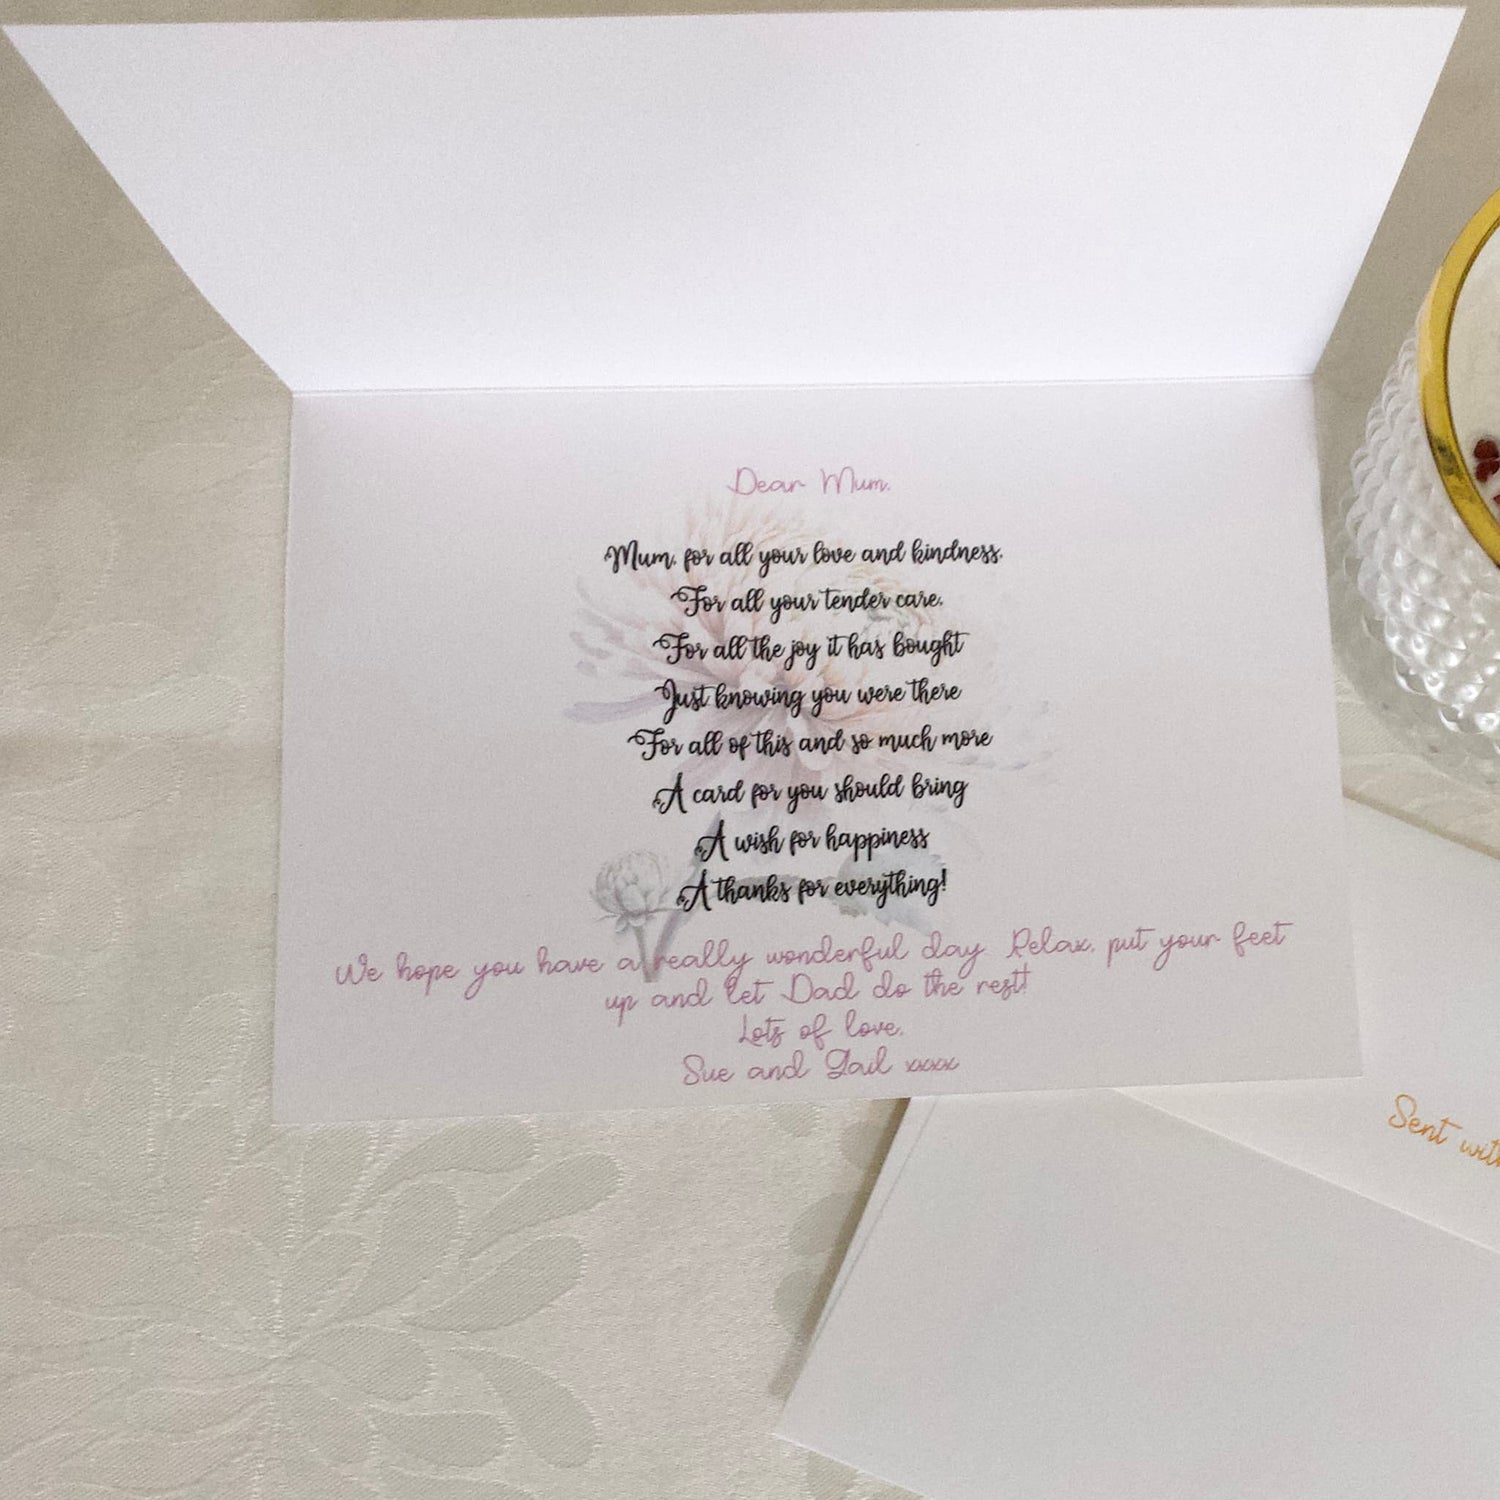 Dear Mum,
Mum, for all your love and kindness,
For all your tender care,
For all the joy it has bought
Just knowing you were there
For all of this and so much more
A card for you should bring
A wish for happiness
A thanks for everything!
We hope you have a really wonderful day. Relax, put your feet
up and let Dad do the rest!
Lots of love,
Sue and Gail xxxx
Sent with